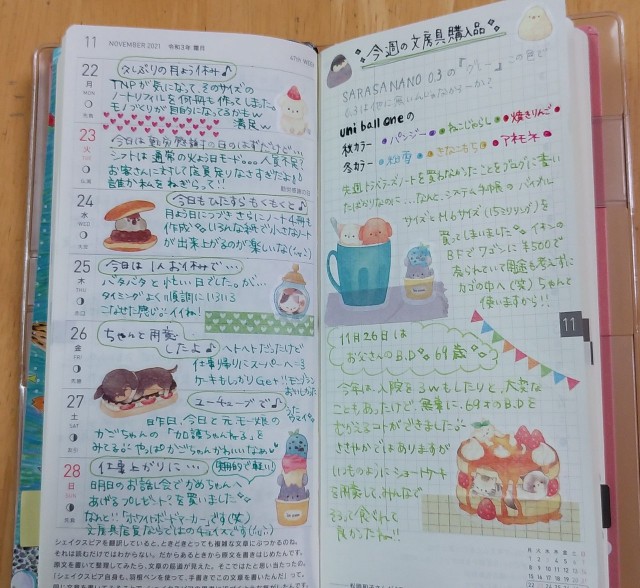 11 NOVEMBER 2021 令和3年 霜月
47TH WEEK
22
月
MON
久しぶりの月よう休み♪
TNPが気になって、そのサイズの
ノートリフィルを何冊も作ってしまった。
モノづくりが目的になってるかもw
満足w
23
火
TUE
今日は勤労感謝の日のはずだけど…
シフトは通常の火よう日モード…。人員不足?
お客さんに対して店員足りなさすぎだよ!
誰か私をねぎらって!!
勤労感謝の日
24
水
WED
今日もひたすらもくもくと♪
月よう日につづきさらにノート4冊も
作成 いろんな紙で小さなノート
が出来上がるのが楽しいな
25
木
THU
今日は1人お休みで…
バタバタと忙しい日でした。が…
タイミングよく順調にいろいろ
こなせた感じ!!イイね!
26
金
FRI
ちゃんと用意
したよ♪
ヘトヘトだったけど
仕事帰りにスーパーへ
ケーキもしっかりGet!!
27
土
SAT
ユーチューブで♪
昨日、今日と元モー娘の
かごちゃんの「加護ちゃんねる」を
みてる やっぱかごちゃんかわいいなぁ
28
日
SUN
仕事上がりに…
明日のお話し会でかめちゃんへ
あげるプレゼントを買いました
なんと!!「ホワイトボードマーカー」です(笑)
文房具店員ならではのチョイスです
シェイクスピアを翻訳していると、ときどきとっても複雑な文章にぶつかるのね。
それは読むだけではわからない。だからあるときから原文を書きはじめたんです。
原文を書いて整理してみたら、文章の筋道が見えた。そこではたと思い当たったの。
「シェイクスピア自身も、羽根ペンを使って、手書きでこの文章を書いたんだ」って。
今週の文房具購入品
SARASA NANO 0.3の「グレー」この色で
0.3は他に無いんじゃなかろーか?
uni ball oneの
秋カラー ●パンジー ●ねこじゃらし ●焼きりんご
冬カラー ●粉雪 ●きなこもち ●アネモネ
先週トラベラーズノートを買わなかったことをブログに書い
たばかりなのに…なんと、システム手帳のバイブル
サイズとM6サイズ(15mmリング)を
買ってしまいました イオンの
BFでワゴンに¥500で
売られていて用途も考えずに
カゴの中へ(笑) ちゃんと
使いますから!!
11
11月26日は
お父さんのB.D 69歳
今年は、入院を3wもしたりと、大変な
こともあったけど、無事に、69才のB.Dを
むかえるコトができました
ささやかではありますが
いつものようにショートケーキ
を用意して、みんなで
そろって食べれて
良かったね!!
月 火 水 木 金 土 日